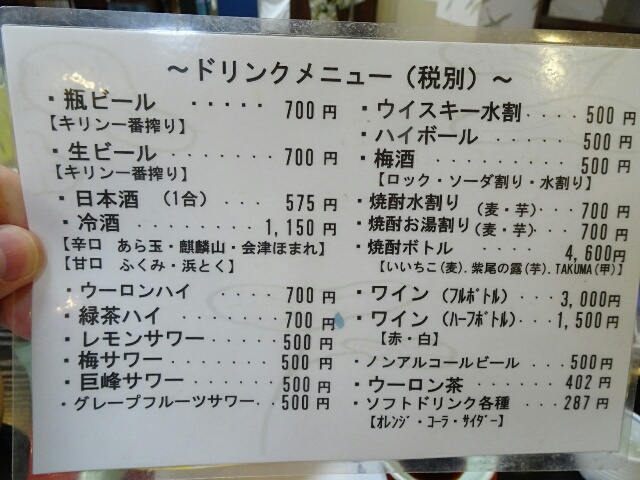 ～ドリンクメニュー（税別）～
・瓶ビール ・・・・・ 700 円
【キリン一番搾り】
・生ビール ・・・・・・・ 700 円
【キリン一番搾り】
・日本酒 （1合） ・・・・ 575 円
・冷酒 ・・・・・・・・ 1,150 円
【辛口 あら玉・麒麟山・会津ほまれ】
【甘口 ふくみ・浜とく】
・ウーロンハイ ・・・・ 700 円
・緑茶ハイ ・・・・・・ 700 円
・レモンサワー ・・・・・ 500 円
・梅サワー ・・・・・・・ 500 円
・巨峰サワー ・・・・・・ 500 円
・グレープフルーツサワー・・500 円
・ウイスキー水割・・・・500 円
・ハイボール ・・・・・ 500 円
・梅酒 ・・・・・・・・ 500 円
【ロック・ソーダ割り・水割り】
・焼酎水割り （麦・芋）・・・700 円
・焼酎お湯割り（麦・芋）・・・700 円
・焼酎ボトル ・・・・ 4,600円
【いいちこ(麦).紫尾の露(芋).TAKUMA(甲)】
・ワイン （ﾌﾙﾎﾞﾄﾙ）・・・3,000円
・ワイン （ﾊｰﾌﾎﾞﾄﾙ）・・1,500 円
【赤・白】
・ノンアルコールビール ・・・・500 円
・ウーロン茶 ・・・・・・ 402 円
・ソフトドリンク各種 ・・・287 円
【ｵﾚﾝｼﾞ・ｺｰﾗ・ｻｲﾀﾞｰ】